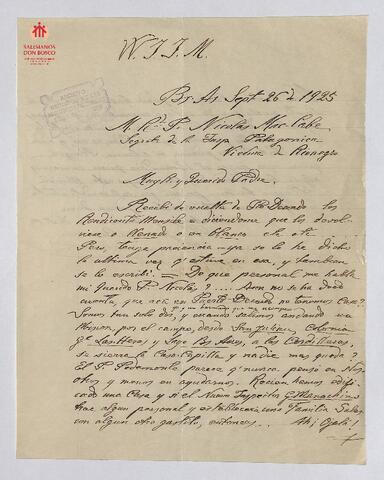 SALESIANOS
DON BOSCO
W. J. J. M.
Bs. As. Sept 26 de 1925
M. Rdo. P. Nicolas Mac-Cabe
Secrete de la Insp. Patagonica
Viedma de Rionegro
Muy Rdo y Querido Padre
Recibi de vuelta de Pto Deseado los
Rendiconti Mensile diciendome que los devol
viera o llenado o en blanco
Pero, tenga paciencia ya se lo he dicho
la ultima vez q' estuve en esa, y tambien
se lo escribi = De que personal me habla
mi Querido P. Nicolas? .... Aun no se ha dado
cuenta, que aca en Puerto Deseado no tenemos Casa?
Somos solo dos, y cuando salimos andando en
Mision, por el campo, desde San Julian, Colonia
Gl. Las Heras y Lago Bs Aires, a las Cordilleras,
se cierra la Casa-Capilla y nadie mas queda?
El P. Pedemonte parece q' nunca penso en Nos
otros y menos en ayudarnos. Recien hemos edifi
cado una Casa y si el Nuevo Inspector G. Manachino
trae algun personal y establecera una Familia Sales.
con algun otro gastito, entonces ... Ahi Ojala!